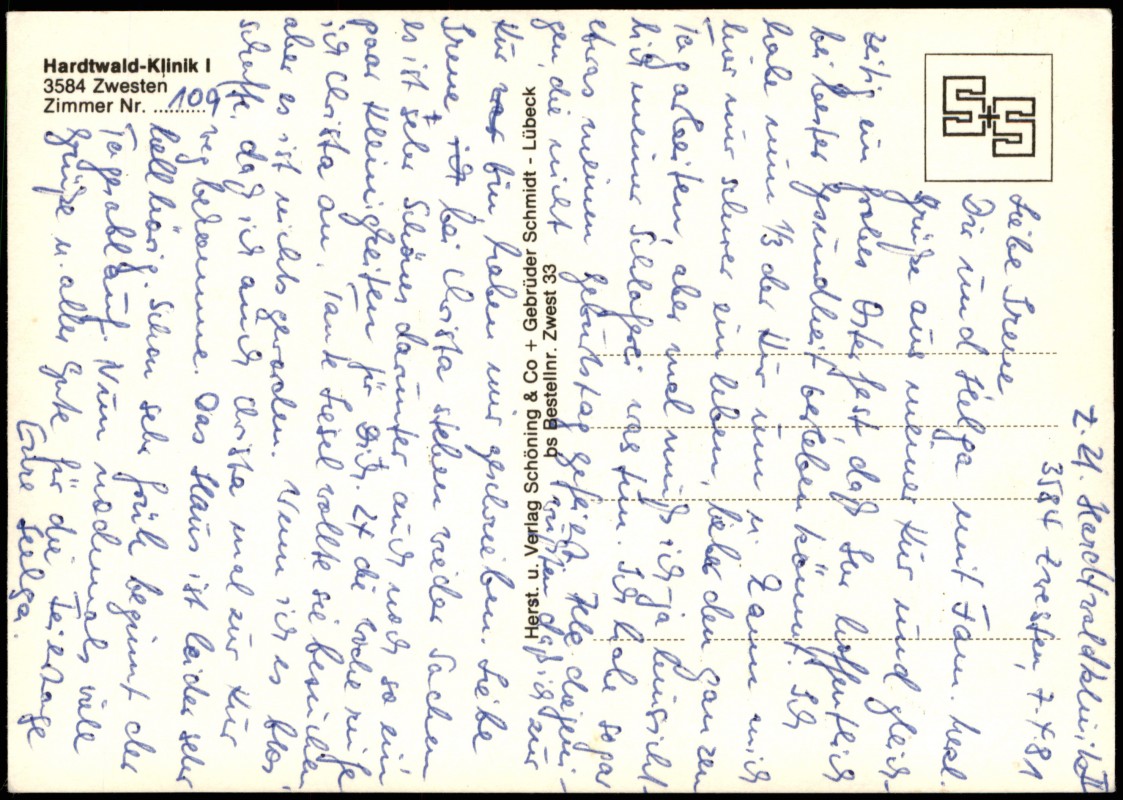 Hardtwald-Klinik I
3584 Zwesten
Zimmer Nr. 109
Herst. u. Verlag Schöning & Co + Gebrüder Schmidt - Lübeck
bs Bestellnr. Zwest 33
Z. Zt. Hardtwaldklinik II
3584 Zwesten, 7.4.81
Liebe Irene
Dir und Helga mit Fam. herzl.
Grüße aus meiner Kur und gleich-
zeitig ein frohes Osterfest, daß Ihr hoffentlich
bei bester Gesundheit verleben könnt. Ich
habe nun 1/3 der Kur um u. kann mich
hier nur schwer ein leben, lieber den ganzen
Tag arbeiten, aber mal muß ich ja hinsicht-
lich meiner Schlaferei was tun. Ich habe sogar
etwas meinen Geburtstag gefeiert. Viele diejeni-
gen, die nicht wußten daß ich zur
Kur bin, haben mir geschrieben. Liebe
Irene, bei Christa stehen wieder Sachen
es ist sehr schönes darunter auch noch so ein
paar Kleinigkeiten für Dich. 2x die Woche rufe
ich Christa an. Tante Liesel wollte sie besuchen
aber es ist nichts geworden. Wenn ich es blos
schaffe, daß ich auch Christa mal zur Kur
weg bekomme. Das Haus ist leider sehr
hellhörig. Schon sehr früh beginnt der
Tagesablauf. Nun nochmals viele
Grüße u. alles Gute für die Feiertage
Eure Helga.